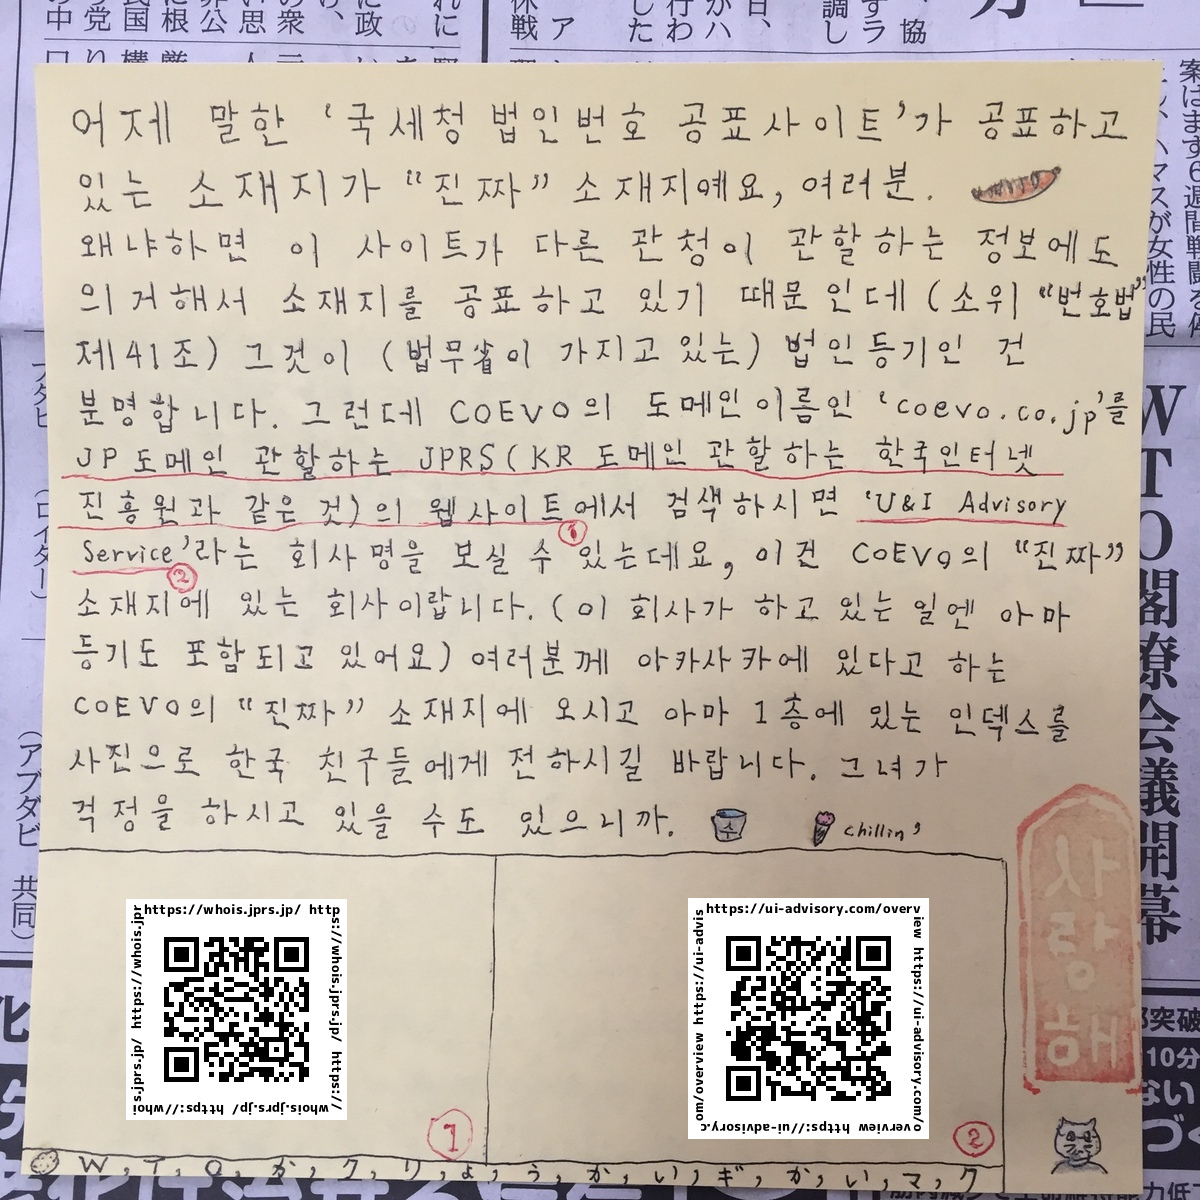 어제 말한 ‘국세청 법인번호 공표사이트’가 공표하고
있는 소재지가 “진짜” 소재지예요, 여러분.
왜냐하면 이 사이트가 다른 관청이 관할하는 정보에도
의거해서 소재지를 공표하고 있기 때문인데 (소위 “번호법”
제41조) 그것이 (법무省이 가지고 있는) 법인등기인 건
분명합니다. 그런데 COEVO의 도메인이름인 ‘coevo.co.jp’를
JP도메인 관할하는 JPRS(KR 도메인 관할하는 한국인터넷
진흥원과 같은 것)의 웹사이트에서 검색하시면 ‘U&I Advisory
①
Service’라는 회사명을 보실 수 있는데요, 이건 COEVO의 “진짜”
②
소재지에 있는 회사이랍니다. (이 회사가 하고 있는 일엔 아마
등기도 포함되고 있어요) 여러분께 아카사카에 있다고 하는
COEVO의 “진짜” 소재지에 오시고 아마 1층에 있는 인덱스를
사진으로 한국 친구들에게 전하시길 바랍니다. 그녀가
걱정을 하시고 있을 수도 있으니까.
수
chillin’
사랑해
https://whois.jprs.jp/ http
s://whois.jprs.jp/ https://
whois.jprs.jp/ https://whoi
s.jprs.jp/ https://whois.jpr
①
https://ui-advisory.com/overv
iew https://ui-advisory.com/o
verview https://ui-advisory.c
om/overview https://ui-advis
②
W,T,O,か,ク,り,ょ,う,か,い,ギ,か,い,マ,ク
WTO閣僚会議開幕
（ロイター）
（アブダビ
共同）